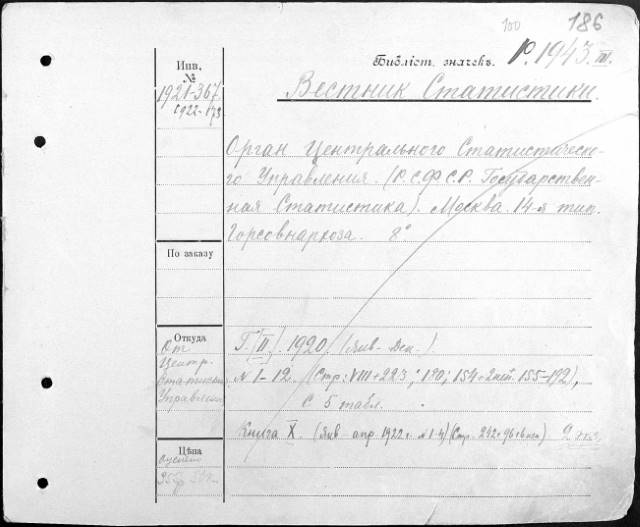 100 186
Библіот. значекъ. Р. 1943. III.
Инв.
№
1921-367
1922-173
Вестник Статистики.
Орган Центрального Статистическо-
го Управления. (Р.С.Ф.С.Р. Государствен-
ная Статистика). Москва. 14-я тип.
Горсовнархоза. 8°
По заказу
Откуда
От
Центр.
Статистич.
Управления
Г. [II]. 1920. (Янв.-Дек.)
№ 1-12. (Стр: VIII+223; 190; 154+2ней. 155-192),
с 5 табл.
Книга X. (Янв-апр. 1922 г. № 1-4) (Стр. 242+96+) 2 экз.
Цѣна
оценено